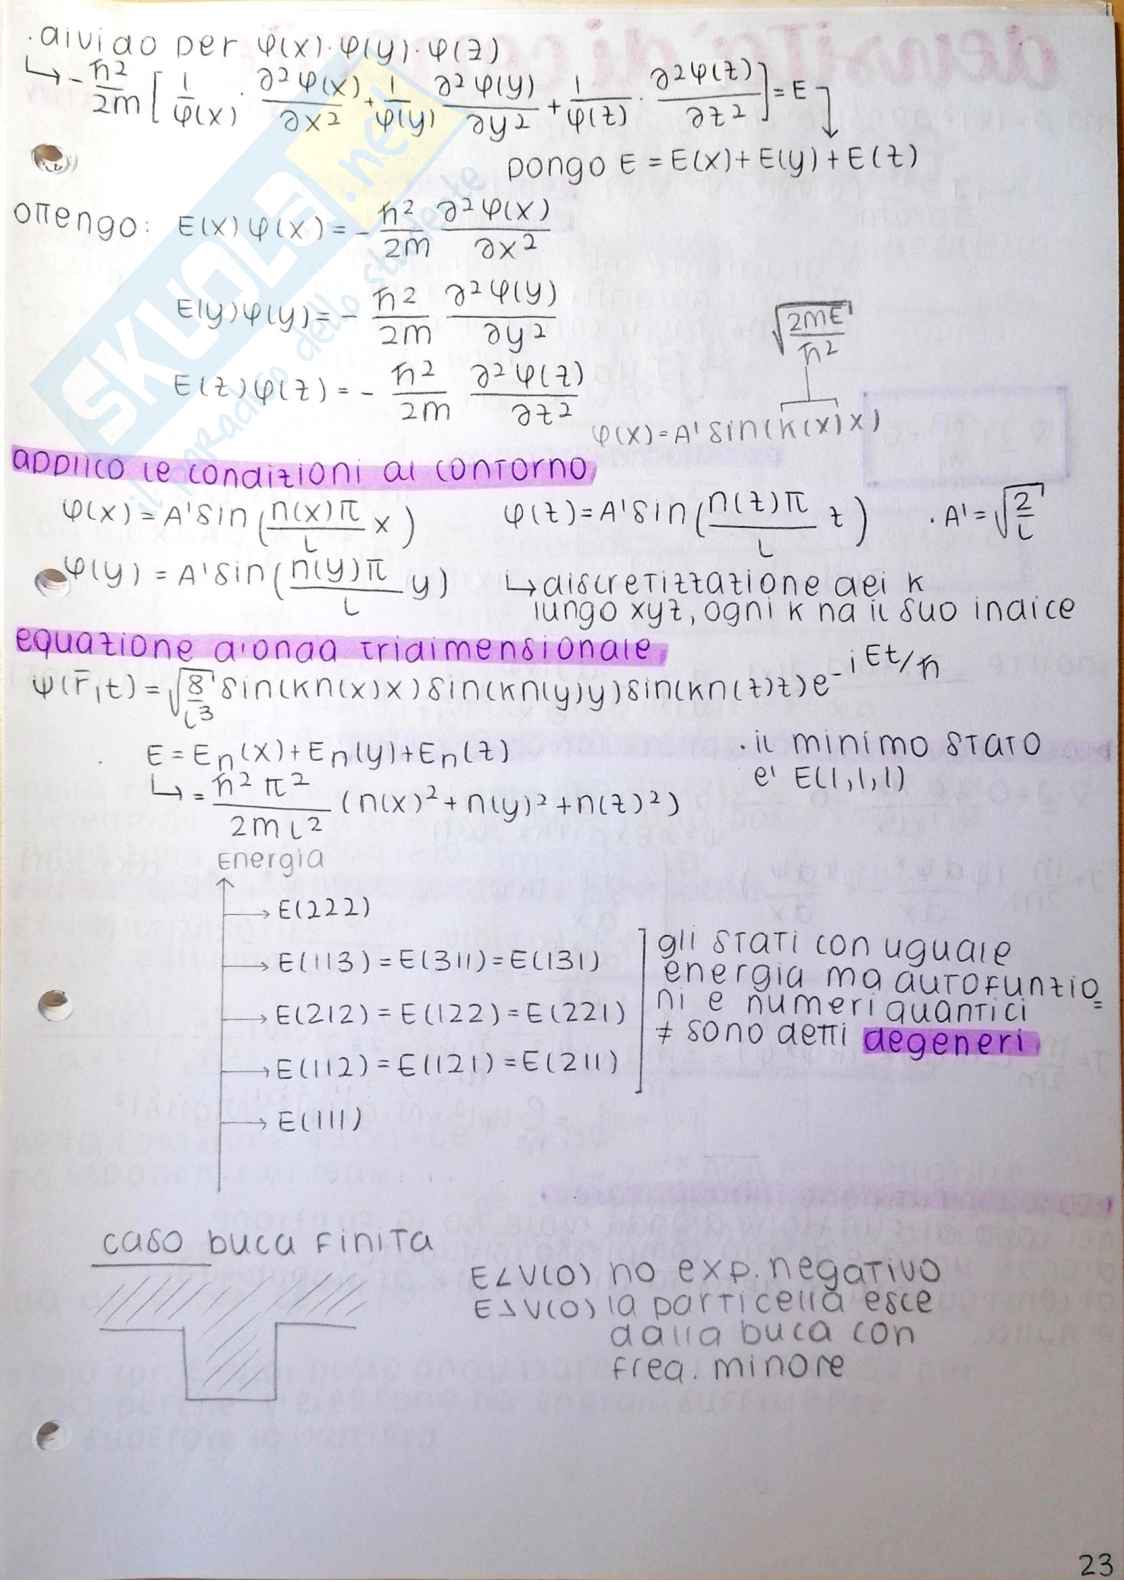 .divido per φ(x)·φ(y)·φ(z)
↳ -ℏ²/2m [1/φ(x) · ∂²φ(x)/∂x² + 1/φ(y) ∂²φ(y)/∂y² + 1/φ(z) · ∂²φ(z)/∂z²] = E
pongo E = E(x)+E(y)+E(z)
ottengo: E(x)φ(x) = -ℏ²/2m ∂²φ(x)/∂x²
E(y)φ(y) = -ℏ²/2m ∂²φ(y)/∂y²
√2mE/ℏ²
E(z)φ(z) = -ℏ²/2m ∂²φ(z)/∂z²
φ(x)=A'sin(k(x)x)
applico le condizioni al contorno
φ(x)=A'sin(n(x)π/L x) φ(z)=A'sin(n(z)π/L z) .A'=√2/L
φ(y)=A'sin(n(y)π/L y) ↳ discretizzazione dei k
lungo xyz, ogni k ha il suo indice
equazione d'onda tridimensionale
ψ(r̄,t)=√8/L³ sin(kn(x)x)sin(kn(y)y)sin(kn(z)z)e^-iEt/ℏ
E = En(x)+En(y)+En(z)
.il minimo stato
e' E(1,1,1)
↳ = ℏ²π²/2mL² (n(x)²+n(y)²+n(z)²)
Energia
→ E(222)
→ E(113)=E(311)=E(131)
→ E(212)=E(122)=E(221)
→ E(112)=E(121)=E(211)
→ E(111)
gli stati con uguale
energia ma autofunzio=
ni e numeri quantici
≠ sono detti degeneri
caso buca finita
E<V(0) no exp. negativo
E>V(0) la particella esce
dalla buca con
freq. minore
23
SKUOLA.net
il paradiso dello studente